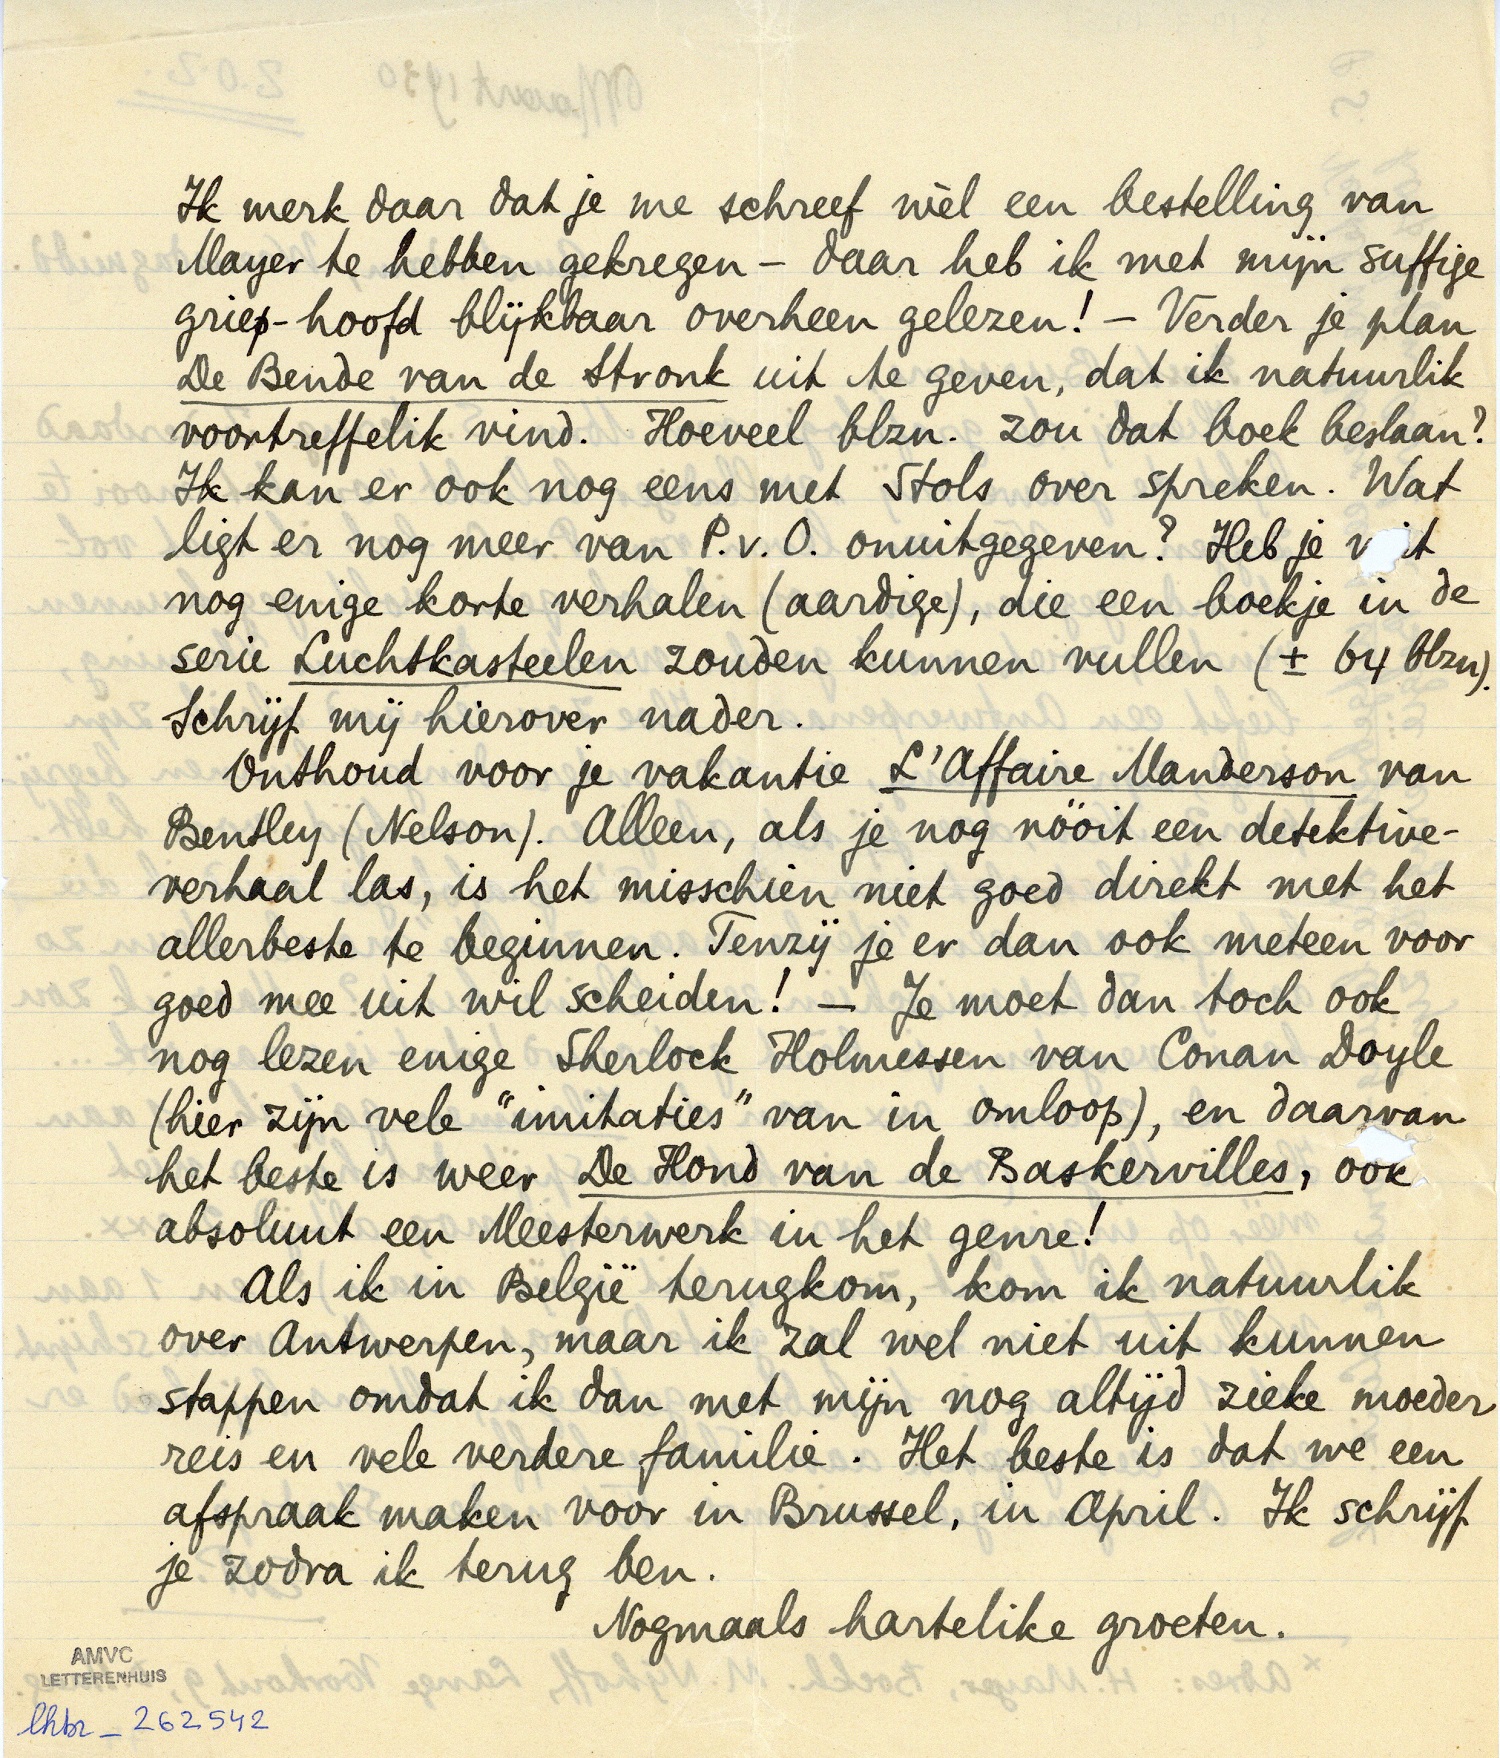 Ik merk daar dat je me schreef wèl een bestelling van
Mayer te hebben gekregen – daar heb ik met mijn suffige
griep-hoofd blijkbaar overheen gelezen! – Verder je plan
De Bende van de Stronk uit te geven, dat ik natuurlik
voortreffelik vind. Hoeveel blzn. zou dat boek beslaan?
Ik kan er ook nog eens met Stols over spreken. Wat
ligt er nog meer van P.v.O. onuitgegeven? Heb je
nog enige korte verhalen (aardige), die een boekje in de
serie Luchtkasteelen zouden kunnen vullen (± 64 blzn).
Schrijf mij hierover nader.
Onthoud voor je vakantie L'Affaire Manderson van
Bentley (Nelson). Alleen, als je nog nööit een detektive-
verhaal las, is het misschien niet goed direkt met het
allerbeste te beginnen. Tenzij je er dan ook meteen voor
goed mee uit wil scheiden! – Je moet dan toch ook
nog lezen enige Sherlock Holmessen van Conan Doyle
(hier zijn vele "imitaties" van in omloop), en daarvan
het beste is weer De Hond van de Baskervilles, ook
absoluut een Meesterwerk in het genre!
Als ik in België terugkom, kom ik natuurlik
over Antwerpen, maar ik zal wel niet uit kunnen
stappen omdat ik dan met mijn nog altijd zieke moeder
reis en vele verdere familie. Het beste is dat we een
afspraak maken voor in Brussel, in April. Ik schrijf
je zodra ik terug ben.
Nogmaals hartelike groeten.
AMVC
LETTERENHUIS
lhbr_262542